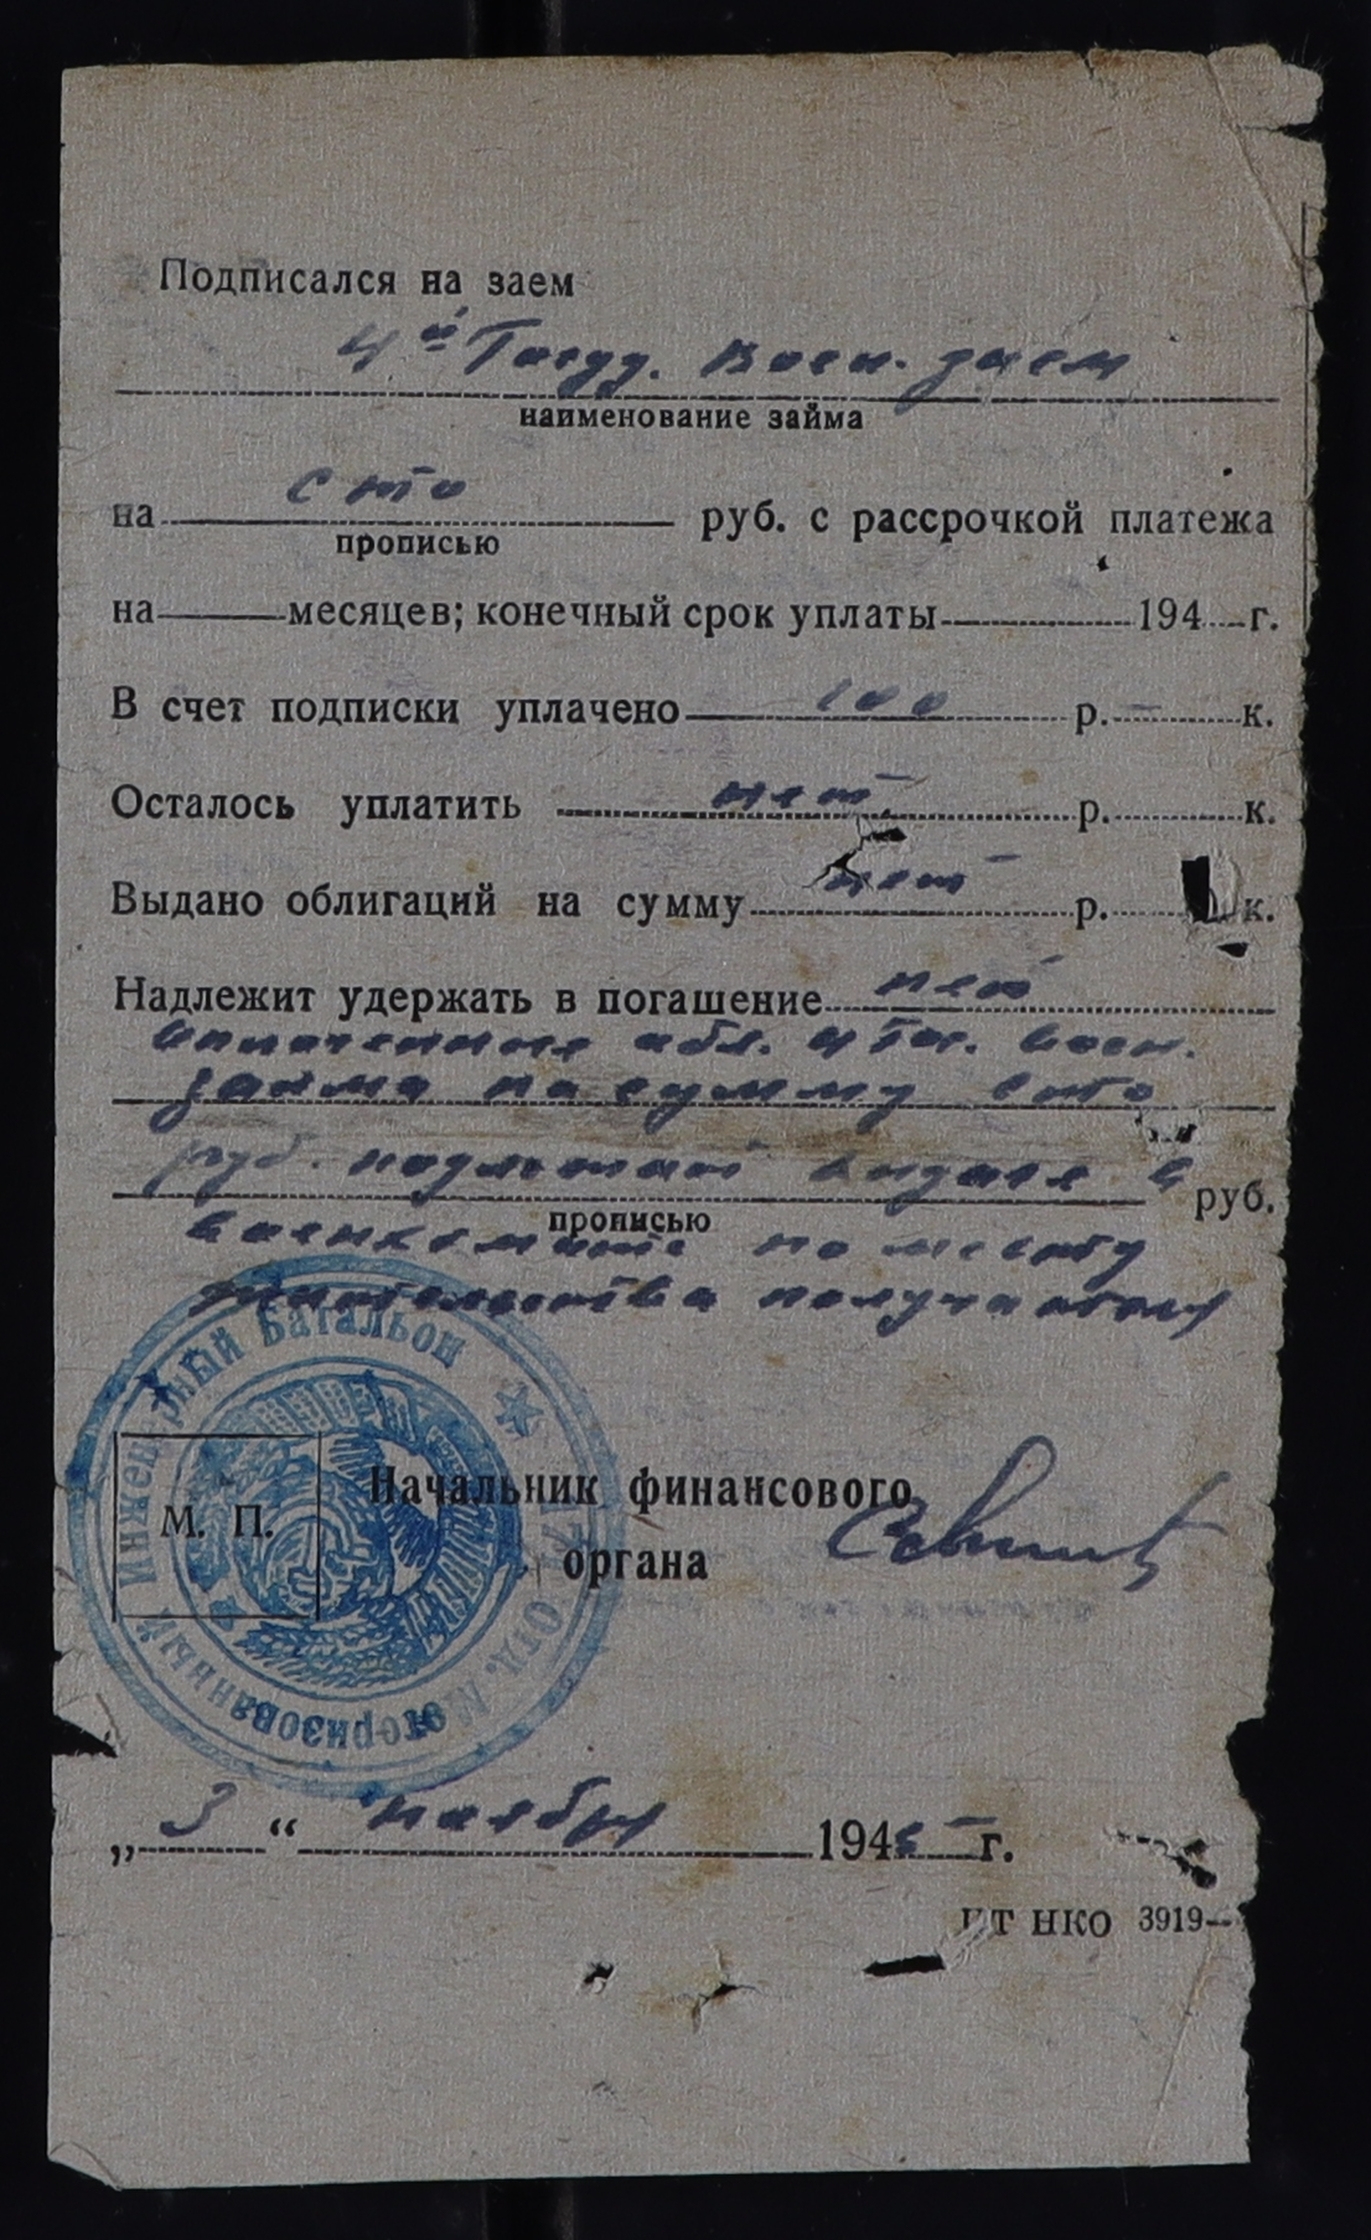 Подписался на заем
4й Госуд. Воен. заем
наименование займа
на сто руб. с рассрочкой платежа
прописью
на месяцев; конечный срок уплаты 194 г.
В счет подписки уплачено 100 р. — к.
Осталось уплатить нет р. к.
Выдано облигаций на сумму нет р. к.
Надлежит удержать в погашение нет
оплаченные обл. 4 Гос. воен.
займа на сумму сто
руб. подлежат выдаче в руб.
прописью
военкомате по месту
жительства получателя
Инженерный Батальон * 171 Отд. Моторизованный
М. П.
Начальник финансового
органа
„3“ ноября 1945 г.
НКО 3919—